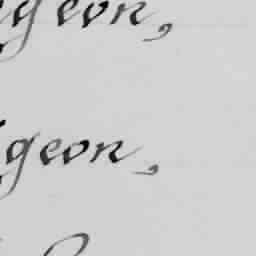 geon,
geon,